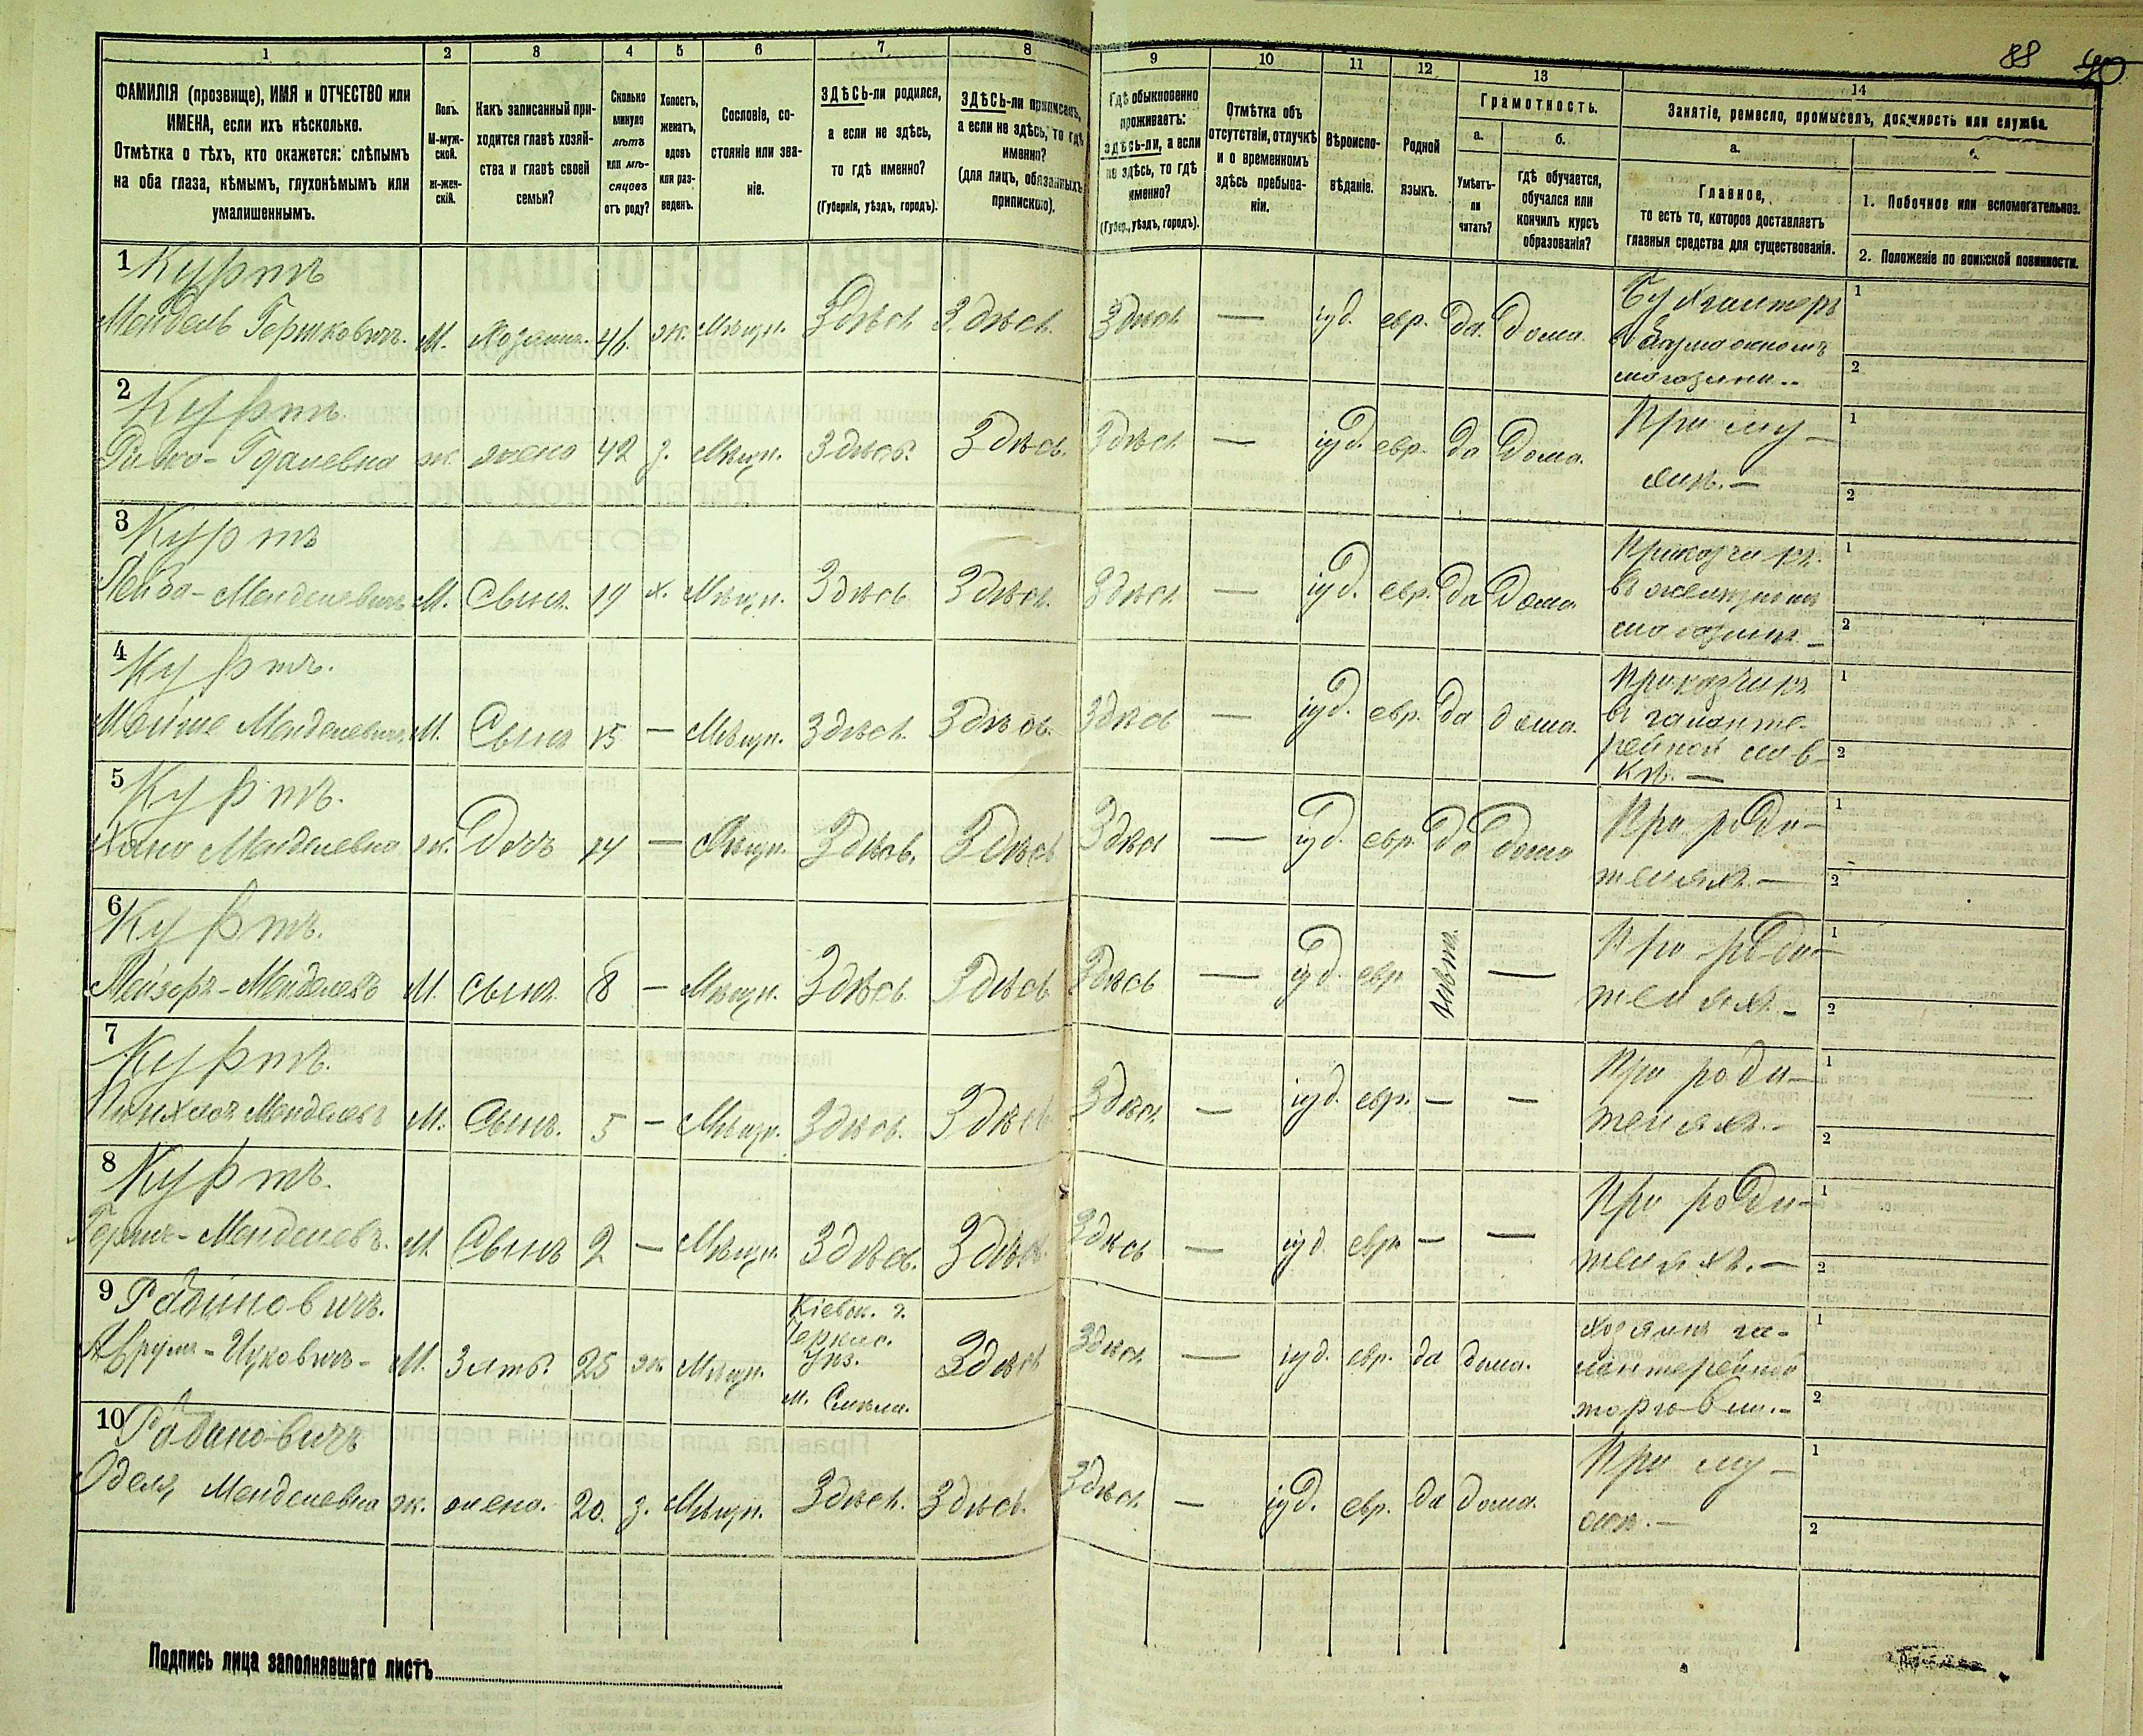 88 90
1 2 3 4 5 6 7 8 9 10 11 12 13 14
ФАМИЛІЯ (прозвище), ИМЯ и ОТЧЕСТВО или
ИМЕНА, если ихъ нѣсколько.
Отмѣтка о тѣхъ, кто окажется: слѣпымъ
на оба глаза, нѣмымъ, глухонѣмымъ или
умалишеннымъ.
Полъ.
М-муж-
ской.
ж-жен-
скій.
Какъ записанный при-
ходится главѣ хозяй-
ства и главѣ своей
семьи?
Сколько
минуло
лѣтъ
или мѣ-
сяцовъ
отъ роду?
Холостъ,
женатъ,
вдовъ
или раз-
веденъ.
Сословіе, со-
стояніе или зва-
ніе.
ЗДѢСЬ-ли родился,
а если не здѣсь,
то гдѣ именно?
(Губернія, уѣздъ, городъ).
ЗДѢСЬ-ли приписанъ,
а если не здѣсь, то гдѣ
именно?
(для лицъ, обязанныхъ
припискою).
Гдѣ обыкновенно
проживаетъ:
здѣсь-ли, а если
не здѣсь, то гдѣ
именно?
(Губер., уѣздъ, городъ).
Отмѣтка объ
отсутствіи, отлучкѣ
и о временномъ
здѣсь пребыва-
ніи.
Вѣроиспо-
вѣданіе.
Родной
языкъ.
Грамотность.
а. б.
Умѣетъ-
ли
читать?
гдѣ обучается,
обучался или
кончилъ курсъ
образованія?
Занятіе, ремесло, промыселъ, должность или служба.
а.
Главное,
то есть то, которое доставляетъ
главныя средства для существованія.
1. Побочное или вспомогательное.
2. Положеніе по воинской повинности.
1 Куртъ
Мендель Гершковичъ. М. Хозяинъ. 46. ж. Мѣщн. Здѣсь Здѣсь. Здѣсь — іуд. евр. да. дома.
Бухгалтеръ
в бумажномъ
магазинѣ..
1
2
2 Куртъ.
Ривка-Гдалевна ж. жена 42 з. Мѣщн. Здѣсь. Здѣсь. Здѣсь — іуд. евр. да дома.
При му-
жѣ.—
1
2
3 Куртъ
Лейба-Менделевичъ М. Сынъ. 19 х. Мѣщн. Здѣсь Здѣсь. Здѣсь — іуд. евр. да дома
Приказчикъ.
въ желѣзномъ
магазинѣ —
1
2
4 Куртъ.
Мойше Менделевичъ. М. Сынъ 15 — Мѣщн. Здѣсь. Здѣсь. Здѣсь — іуд. евр. да дома.
Приказчикъ
въ галанте-
рейной лав-
кѣ. —
1
2
5 Куртъ.
Хана Менделевна ж. Дочь 14 — Мѣщн. Здѣсь. Здѣсь Здѣсь — іуд. евр. да дома
При роди-
теляхъ.—
1
2
6 Куртъ.
Лейзеръ-Менделевъ М. сынъ. 8 — Мѣщн. Здѣсь. Здѣсь Здѣсь — іуд. евр —
При роди-
теляхъ.-
1
2
7 Куртъ.
Пинхасъ Менделевъ М. Сынъ. 5 — Мѣщн. Здѣсь. Здѣсь Здѣсь. — іуд. евр. — —
При роди-
теляхъ.-
1
2
8 Куртъ.
Гершъ-Менделевъ. М. Сынъ 2 — Мѣщн. Здѣсь. Здѣсь. Здѣсь — іуд. евр. — —
При роди-
теляхъ.—
1
2
9 Рабиновичъ.
Аврумъ-Ицковичъ- М. Зять. 25 ж. Мѣщн.
Кіевск. г.
Черкас.
Уѣз.
м. Смѣла.
Здѣсь Здѣсь. — іуд. евр. да дома.
Хозяинъ га-
лантерейной
торговли.-
1
2
10 Рабиновичъ
Оделя, Менделевна ж. жена. 20. з. Мѣщн. Здѣсь. Здѣсь. Здѣсь. — іуд. евр. да дома.
При му-
жѣ.—
1
2
Подпись лица заполнявшаго листъ